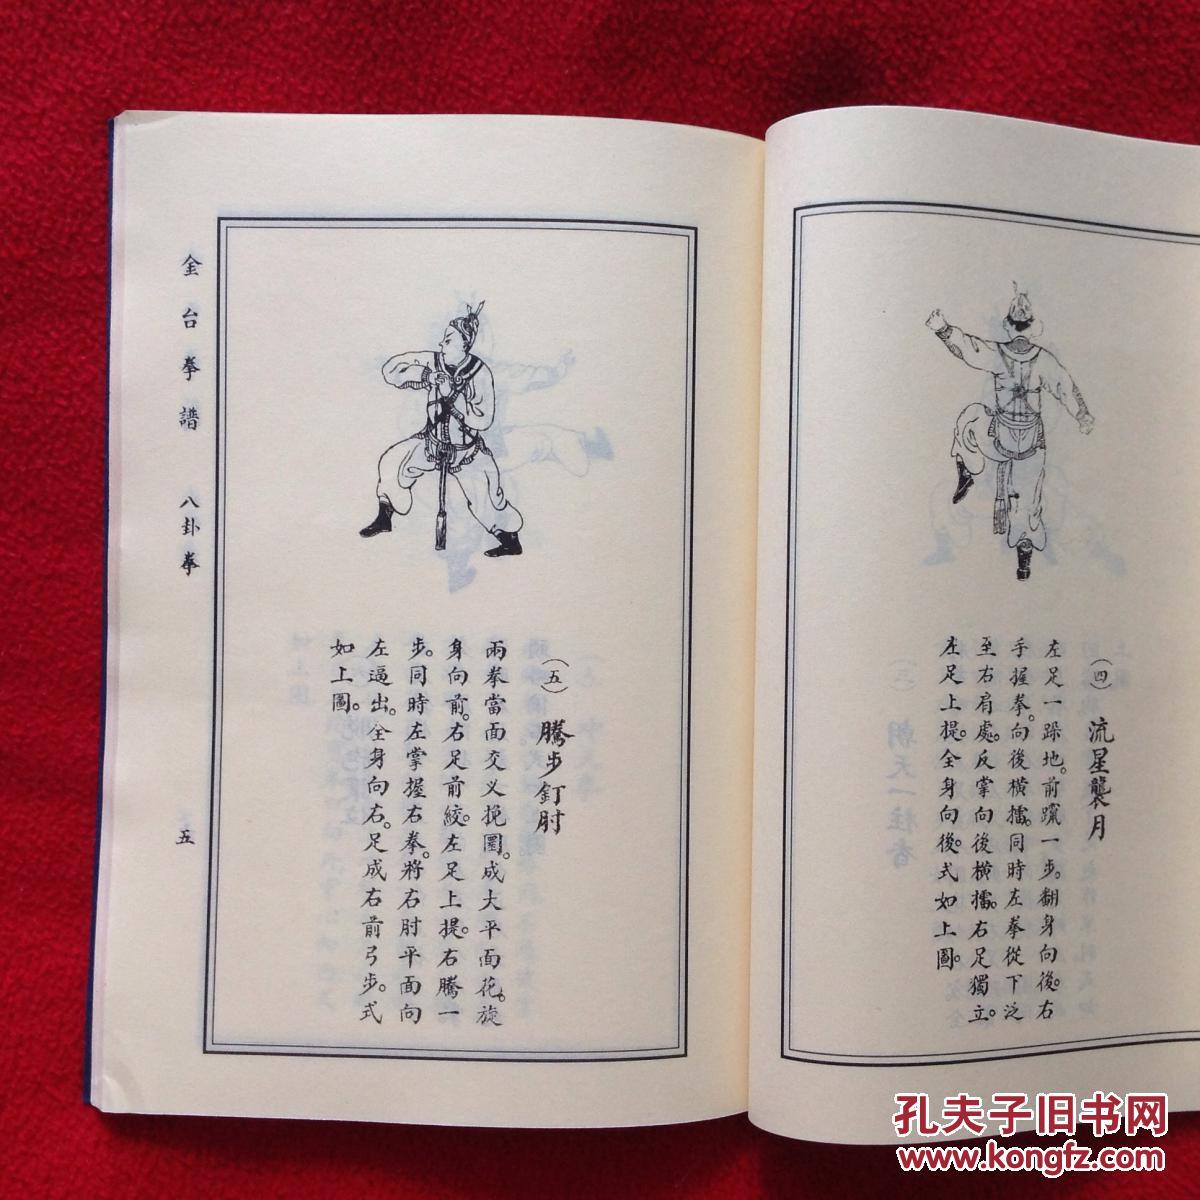 (四) 流星襲月
左足一跺地。前躥一步。翻身向後。右
手握拳。向後橫擂。同時左拳從下泛
至右肩處。反掌向後橫擂。右足獨立。
左足上提。全身向後。式如上圖。
(五) 騰步釘肘
兩拳當面交义挽圈。成大平面花。旋
身向前。右足前絞。左足上提。右騰一
步。同時左掌握右拳。將右肘平面向
左逼出。全身向右。足成右前弓步。式
如上圖。
金台拳譜 八卦拳 五
孔夫子旧书网
www.kongfz.com